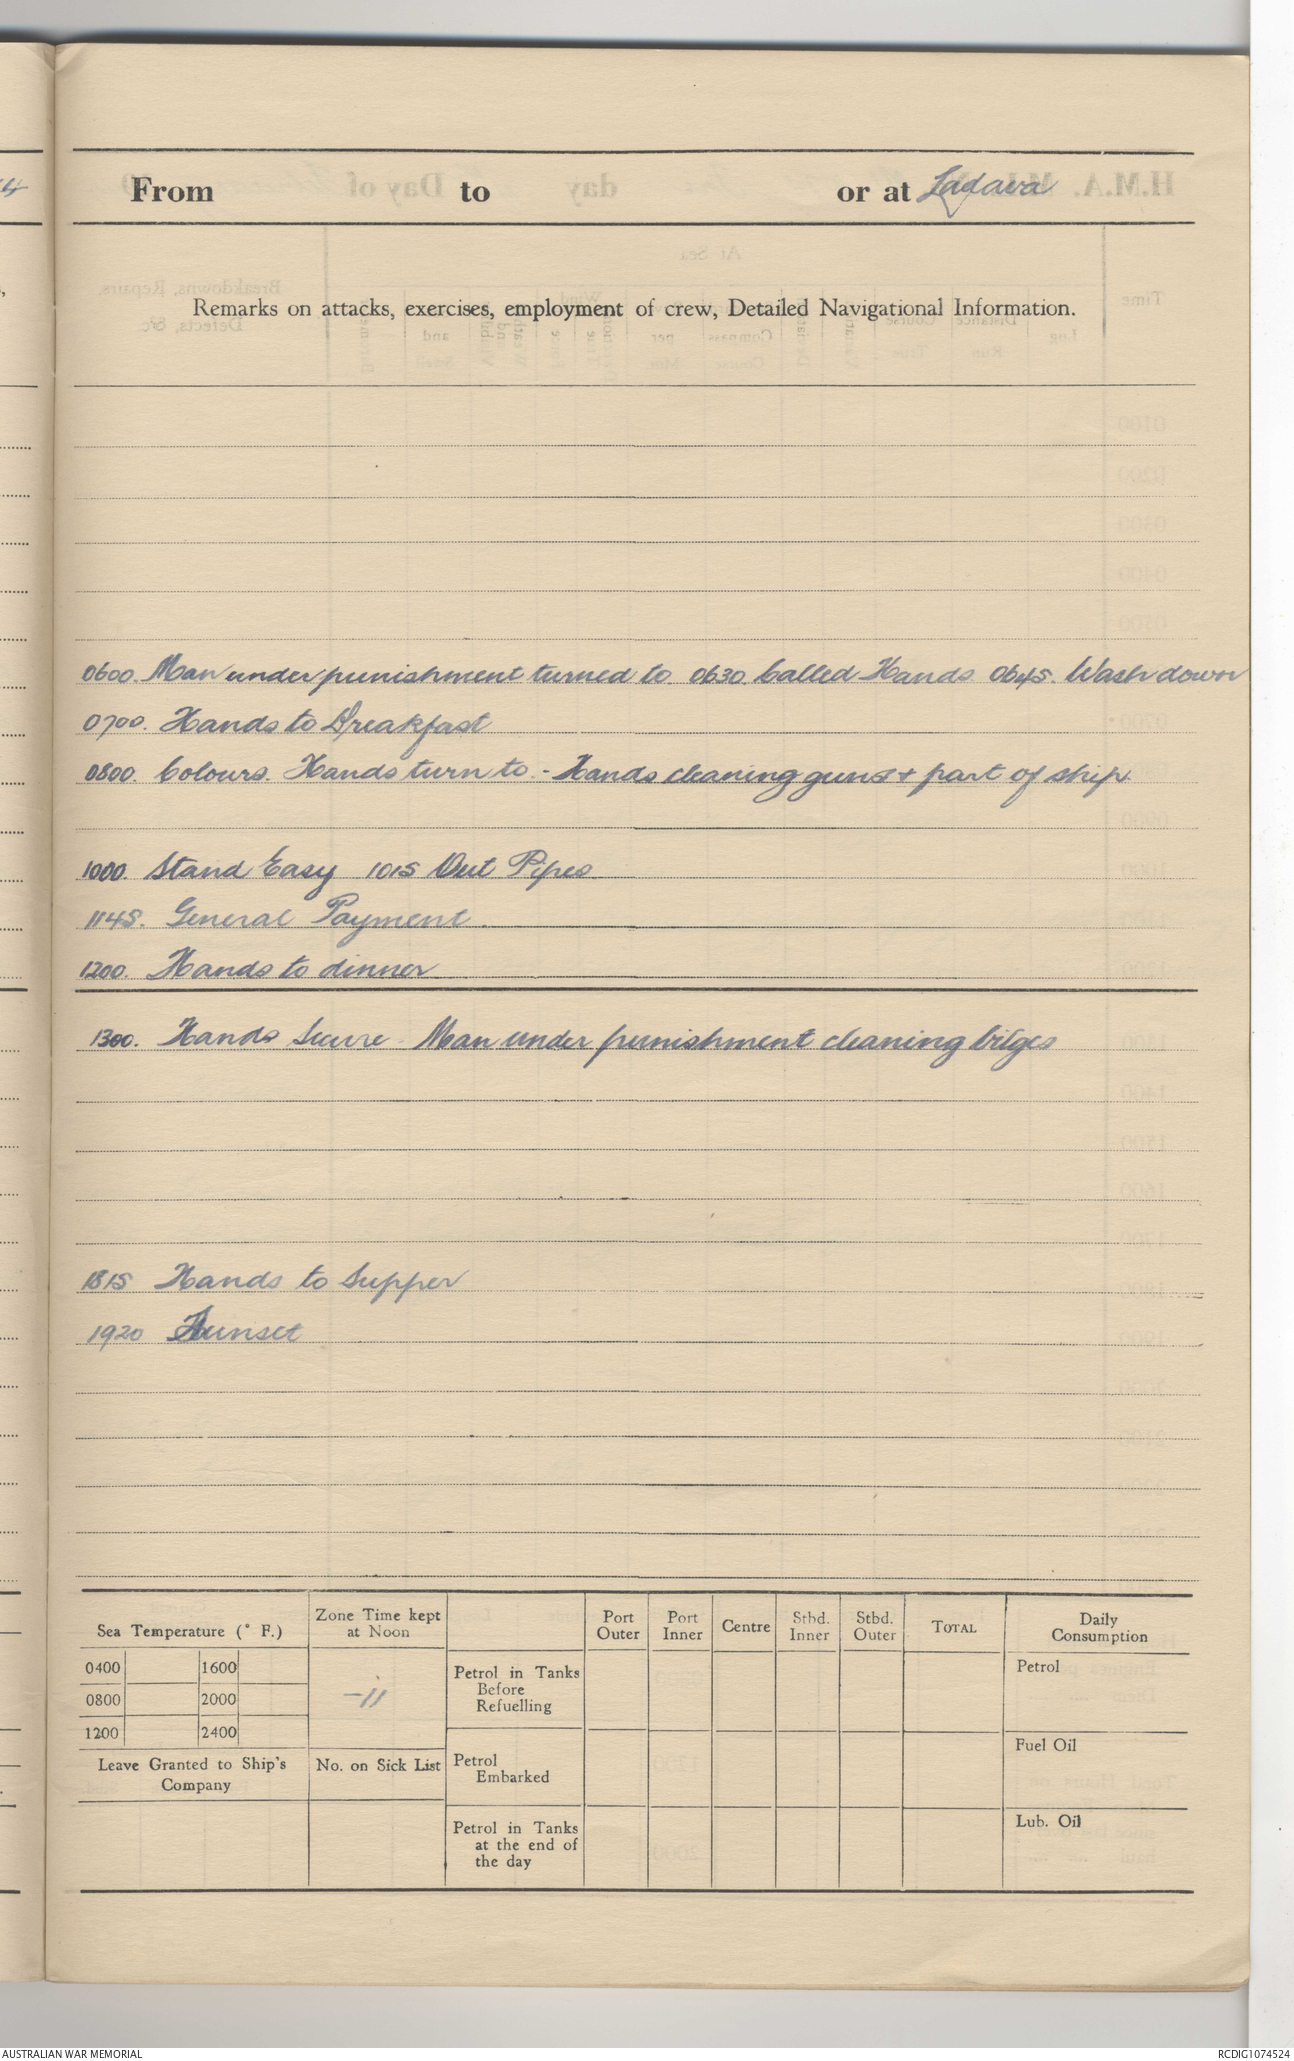 From to or at Ladava
Remarks on attacks, exercises, employment of crew, Detailed Navigational Information.
0600. Man under punishment turned to 0630. Called Hands 0645. Wash down
0700. Hands to Breakfast
0800. Colours. Hands turn to. - Hands cleaning guns + part of ship
1000. Stand Easy 1015 Out Pipes
1145. General Payment.
1200. Hands to dinner
1300. Hands Secure - Man under punishment cleaning bilges
1815 Hands to Supper
1920 Sunset
Sea Temperature (° F.)
0400 1600
0800 2000
1200 2400
Zone Time kept at Noon
-11
Leave Granted to Ship's Company
No. on Sick List
Port Outer Port Inner Centre Stbd. Inner Stbd. Outer TOTAL
Petrol in Tanks Before Refuelling
Petrol Embarked
Petrol in Tanks at the end of the day
Daily Consumption
Petrol
Fuel Oil
Lub. Oil
AUSTRALIAN WAR MEMORIAL RCDIG1074524